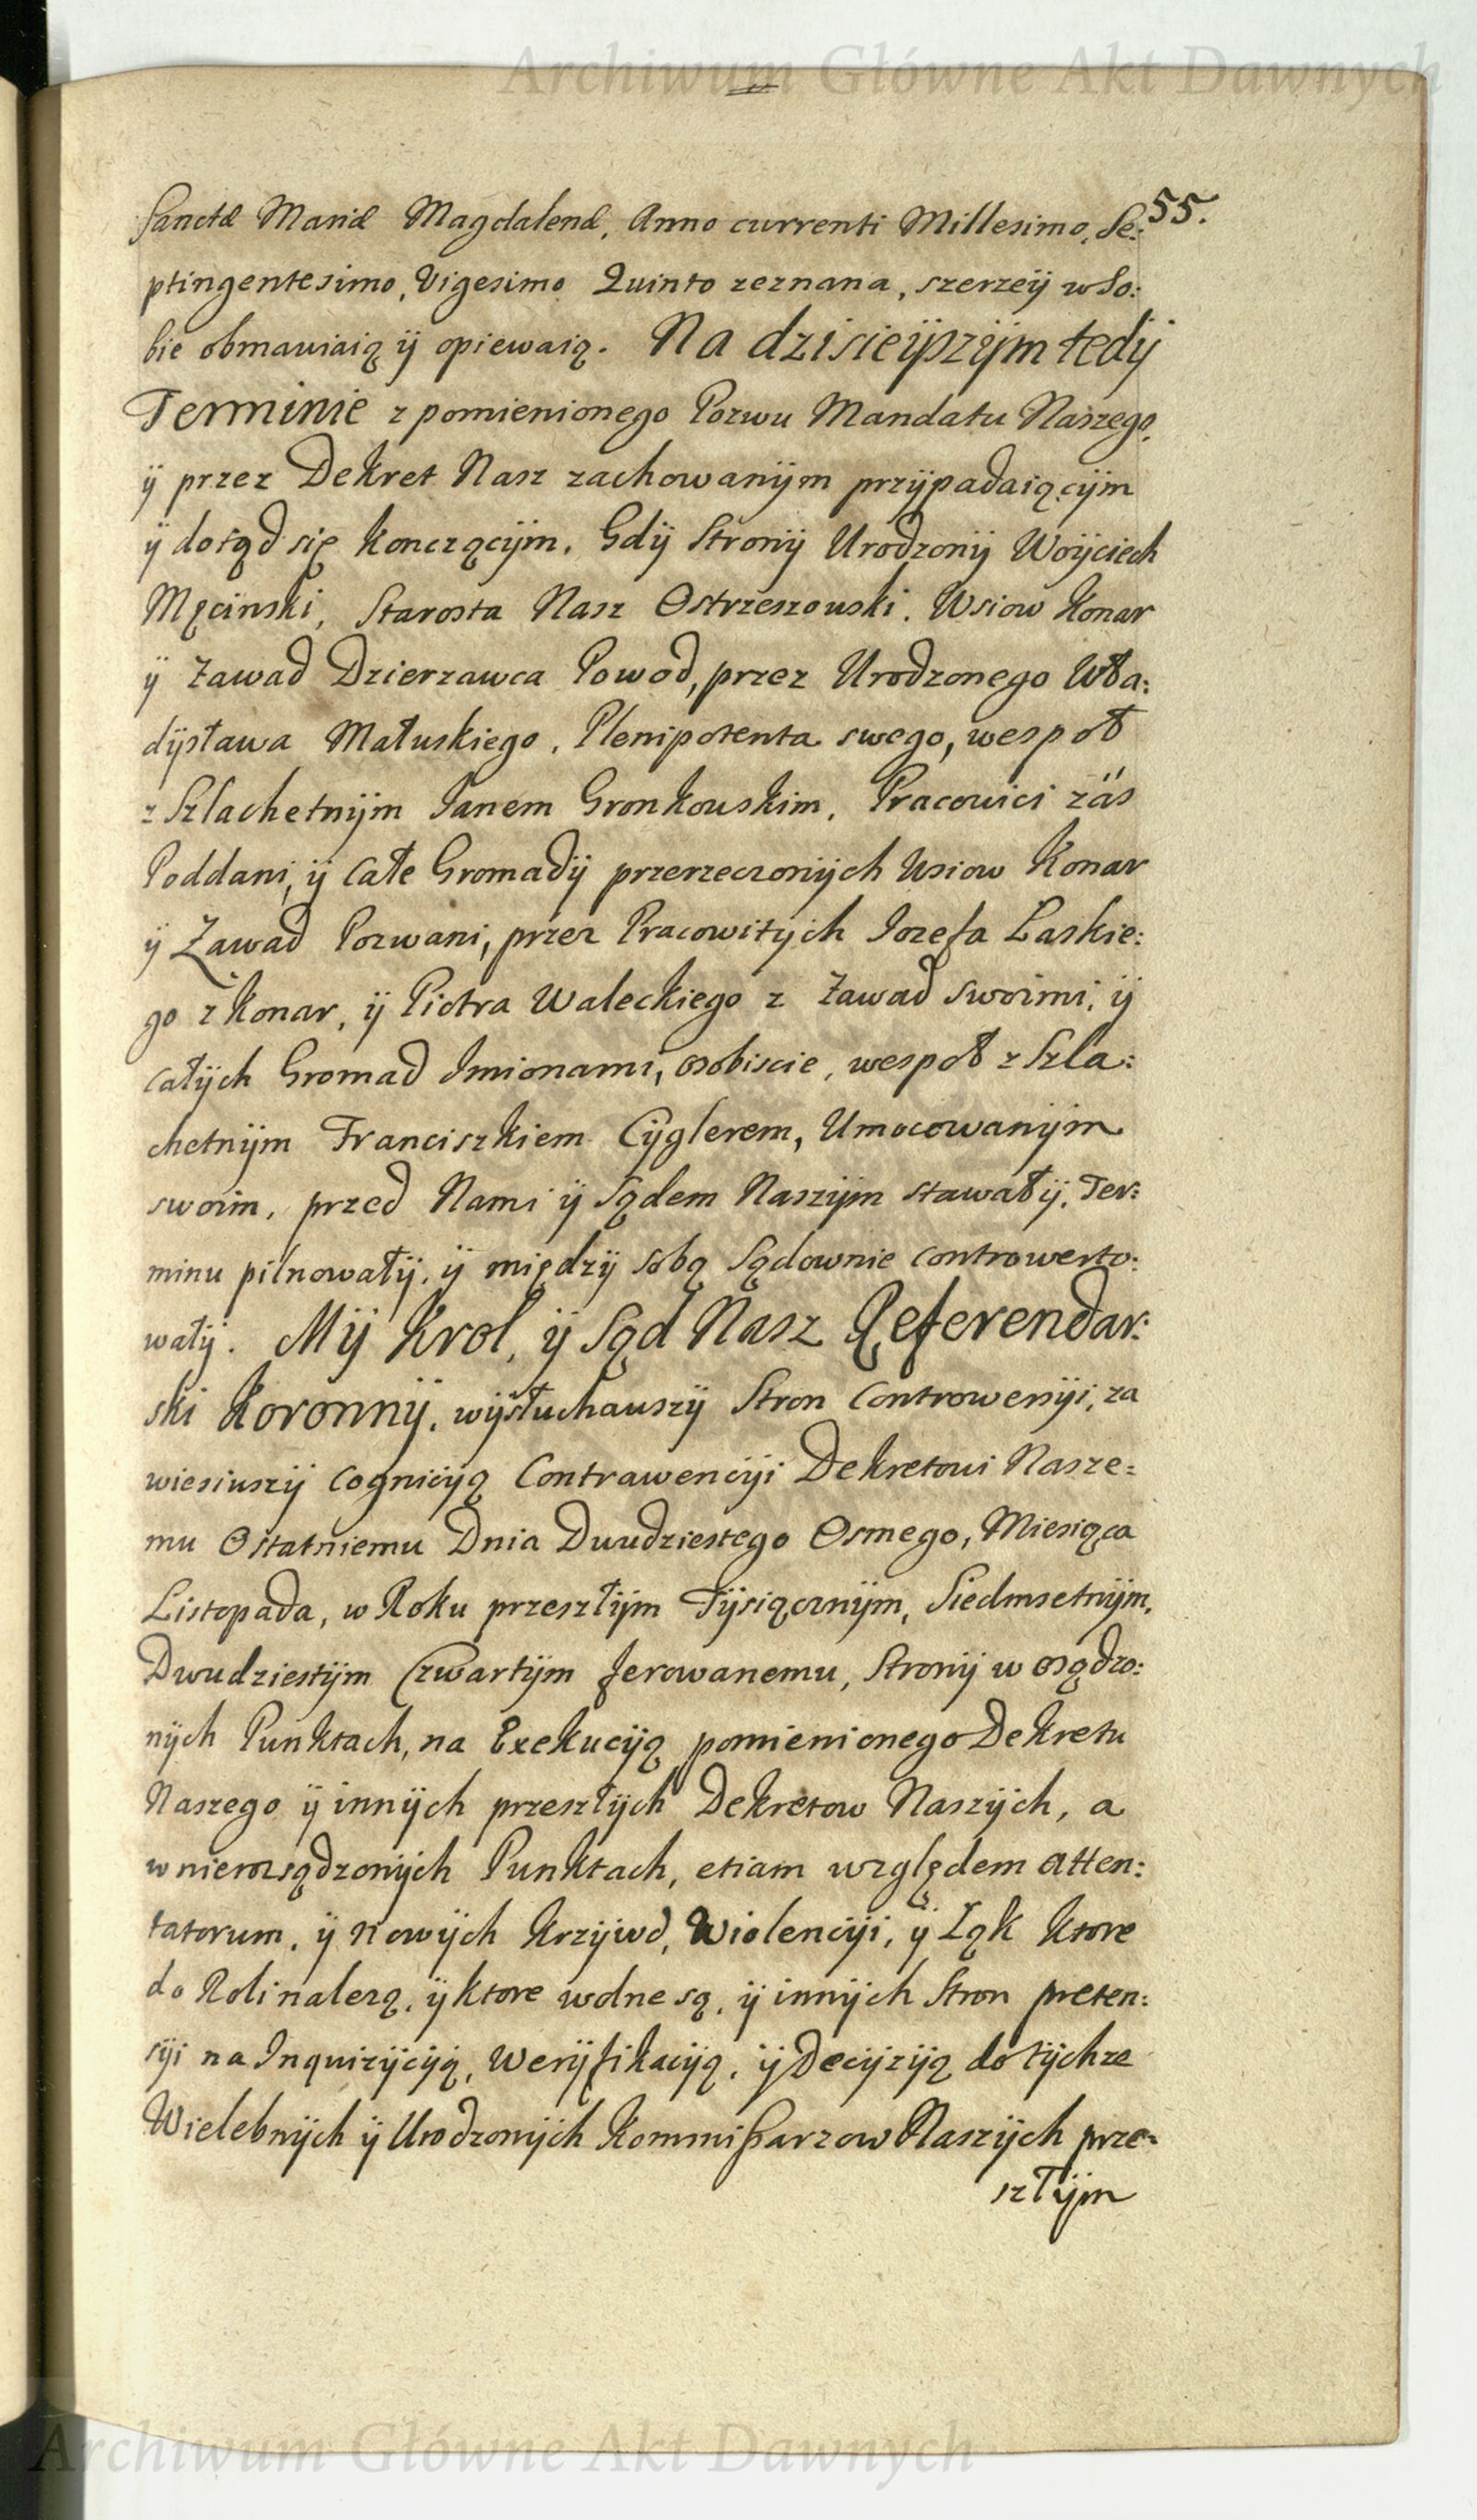 Archiwum Główne Akt Dawnych
55.
Sanctæ Mariæ Magdalenæ, Anno currenti Millesimo, Se:
ptingentesimo, Vigesimo Quinto zeznana, szerzeÿ w so:
bie obmawiaią ÿ opiewaią. Na dzisieÿszÿm tedÿ
Terminie z pomienionego Pozwu Mandatu Naszego,
ÿ przez Dekret Nasz zachowanÿm przÿpadaiącÿm
ÿ dotąd się konczącÿm. Gdÿ Stronÿ Urodzonÿ Woÿciech
Męcinski, Starosta Nasz Ostrzeszowski, Wsiow Konar
ÿ Zawad Dzierzawca Powod, przez Urodzonego Wła:
dÿsława Małuskiego, Plenipotenta swego, wespoł
z Szlachetnÿm Janem Gronkowskim, Pracowici záś
Poddani, ÿ całe Gromadÿ przerzeczonÿch Wsiow Konar
ÿ Zawad Pozwani, przez Pracowitÿch Jozefa Laskie:
go z Konar, ÿ Piotra Waleckiego z Zawad swoimi, ÿ
całÿch Gromad Imionami, osobiscie, wespoł z Szla:
chetnÿm Franciszkiem Cÿglerem, Umocowanÿm
swoim, przed Nami ÿ Sądem Naszÿm stawałÿ, Ter:
minu pilnowałÿ, ÿ międzÿ sobą Sądownie controwerto:
wałÿ. Mÿ Krol, ÿ Sąd Nasz Referendar:
ski Koronnÿ, wÿsłuchawszÿ Stron Controwersÿi, za
wiesiwszÿ cognicÿą Contrawencÿi Dekretowi Nasze:
mu Ostatniemu Dnia Dwudziestego Osmego, Miesiąca
Listopada, w Roku przeszłÿm Tÿsiącznÿm, Siedmsetnÿm,
Dwudziestÿm Czwartÿm ferowanemu, Stronÿ w osądzo:
nÿch Punktach, na Exekucÿą pomienionego Dekretu
Naszego ÿ innÿch przeszłÿch Dekretow Naszÿch, a
w nierozsądzonÿch Punktach, etiam względem atten:
tatorum, ÿ nowÿch Krzÿwd, Wiolencÿi, ÿ Łąk ktore
do Roli nalezą, ÿ ktore wolne są, ÿ innÿch Stron preten:
sÿi na Inquizÿcÿą, Werÿfikacÿą, ÿ Decÿzÿą do tÿchze
Wielebnÿch ÿ Urodzonÿch Kommißarzow Naszÿch prze:
szłÿm
Archiwum Główne Akt Dawnych